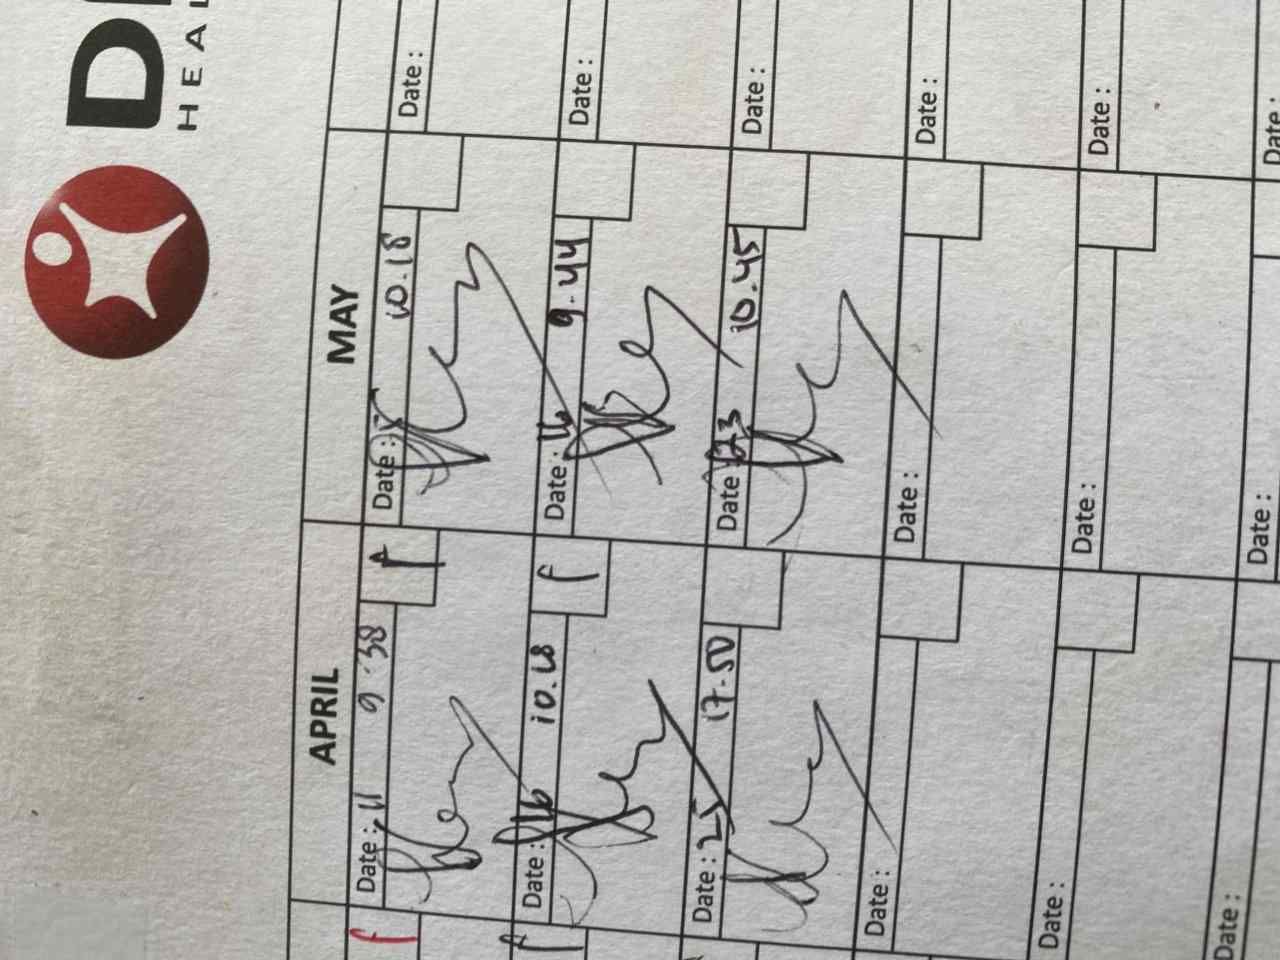 HEAL
APRIL
MAY
Date : 11 9.38 f
Date : 5 10.18
Date :
Date : 16 10.18 f
Date : 16 9.44
Date :
Date : 25 17.50
Date : 23 10.45
Date :
Date :
Date :
Date :
Date :
Date :
Date :
Date :
Date :
Date :
f
f